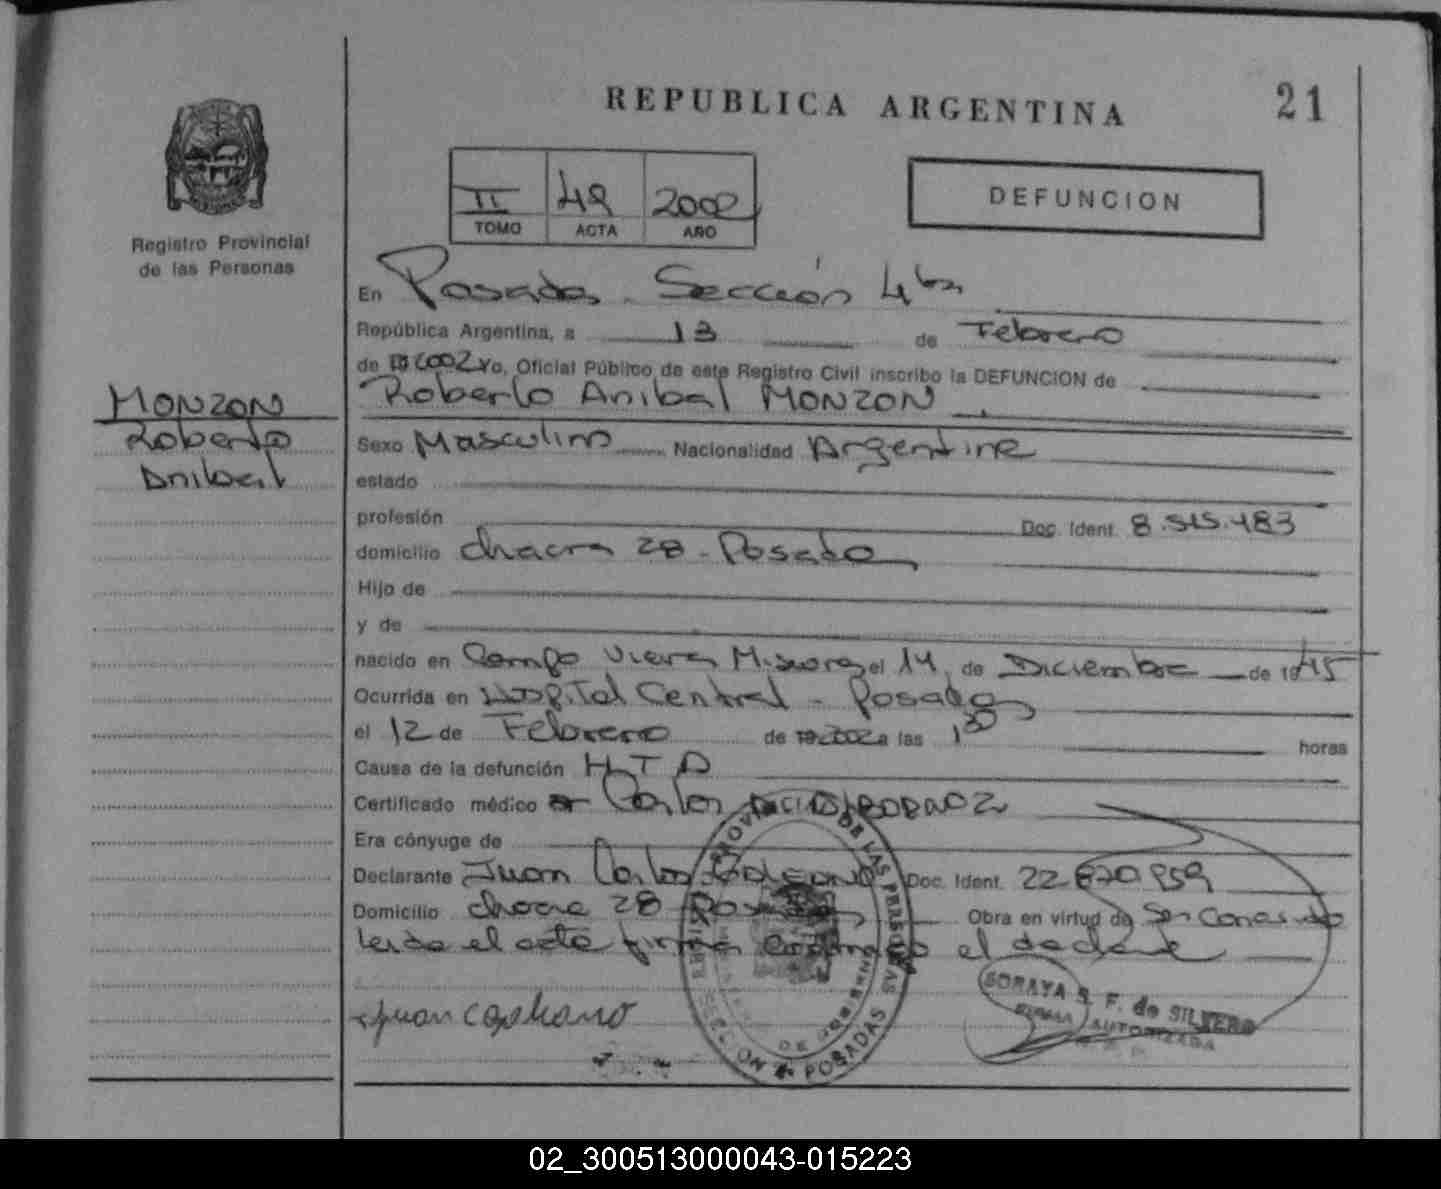 REPUBLICA ARGENTINA
21
Registro Provincial
de las Personas
II 49 2002
TOMO ACTA AÑO
DEFUNCION
MONZON
Roberto
Anibal
En Posadas Sección 4ta
República Argentina, a 13 de Febrero
de 2002 Yo, Oficial Público de este Registro Civil inscribo la DEFUNCION de
Roberto Anibal MONZON
Sexo Masculino Nacionalidad Argentina
estado
profesión Doc. Ident. 8.515.483
domicilio chacra 28 - Posadas
Hijo de
y de
nacido en Campo Viera Misiones el 14 de Diciembre de 1945
Ocurrida en Hospital Central - Posadas
el 12 de Febrero de 2002 a las 1 30 horas
Causa de la defunción
Certificado médico Carlos
Era cónyuge de
Declarante Juan Carlos Doc. Ident. 22.870.959
Domicilio chacra 28 Posadas Obra en virtud de
leida el acta firma el
SORAYA F. de SILVERO
FIRMA AUTORIZADA
REGISTRO PROVINCIAL DE LAS PERSONAS
SECCION 4 POSADAS
02_300513000043-015223